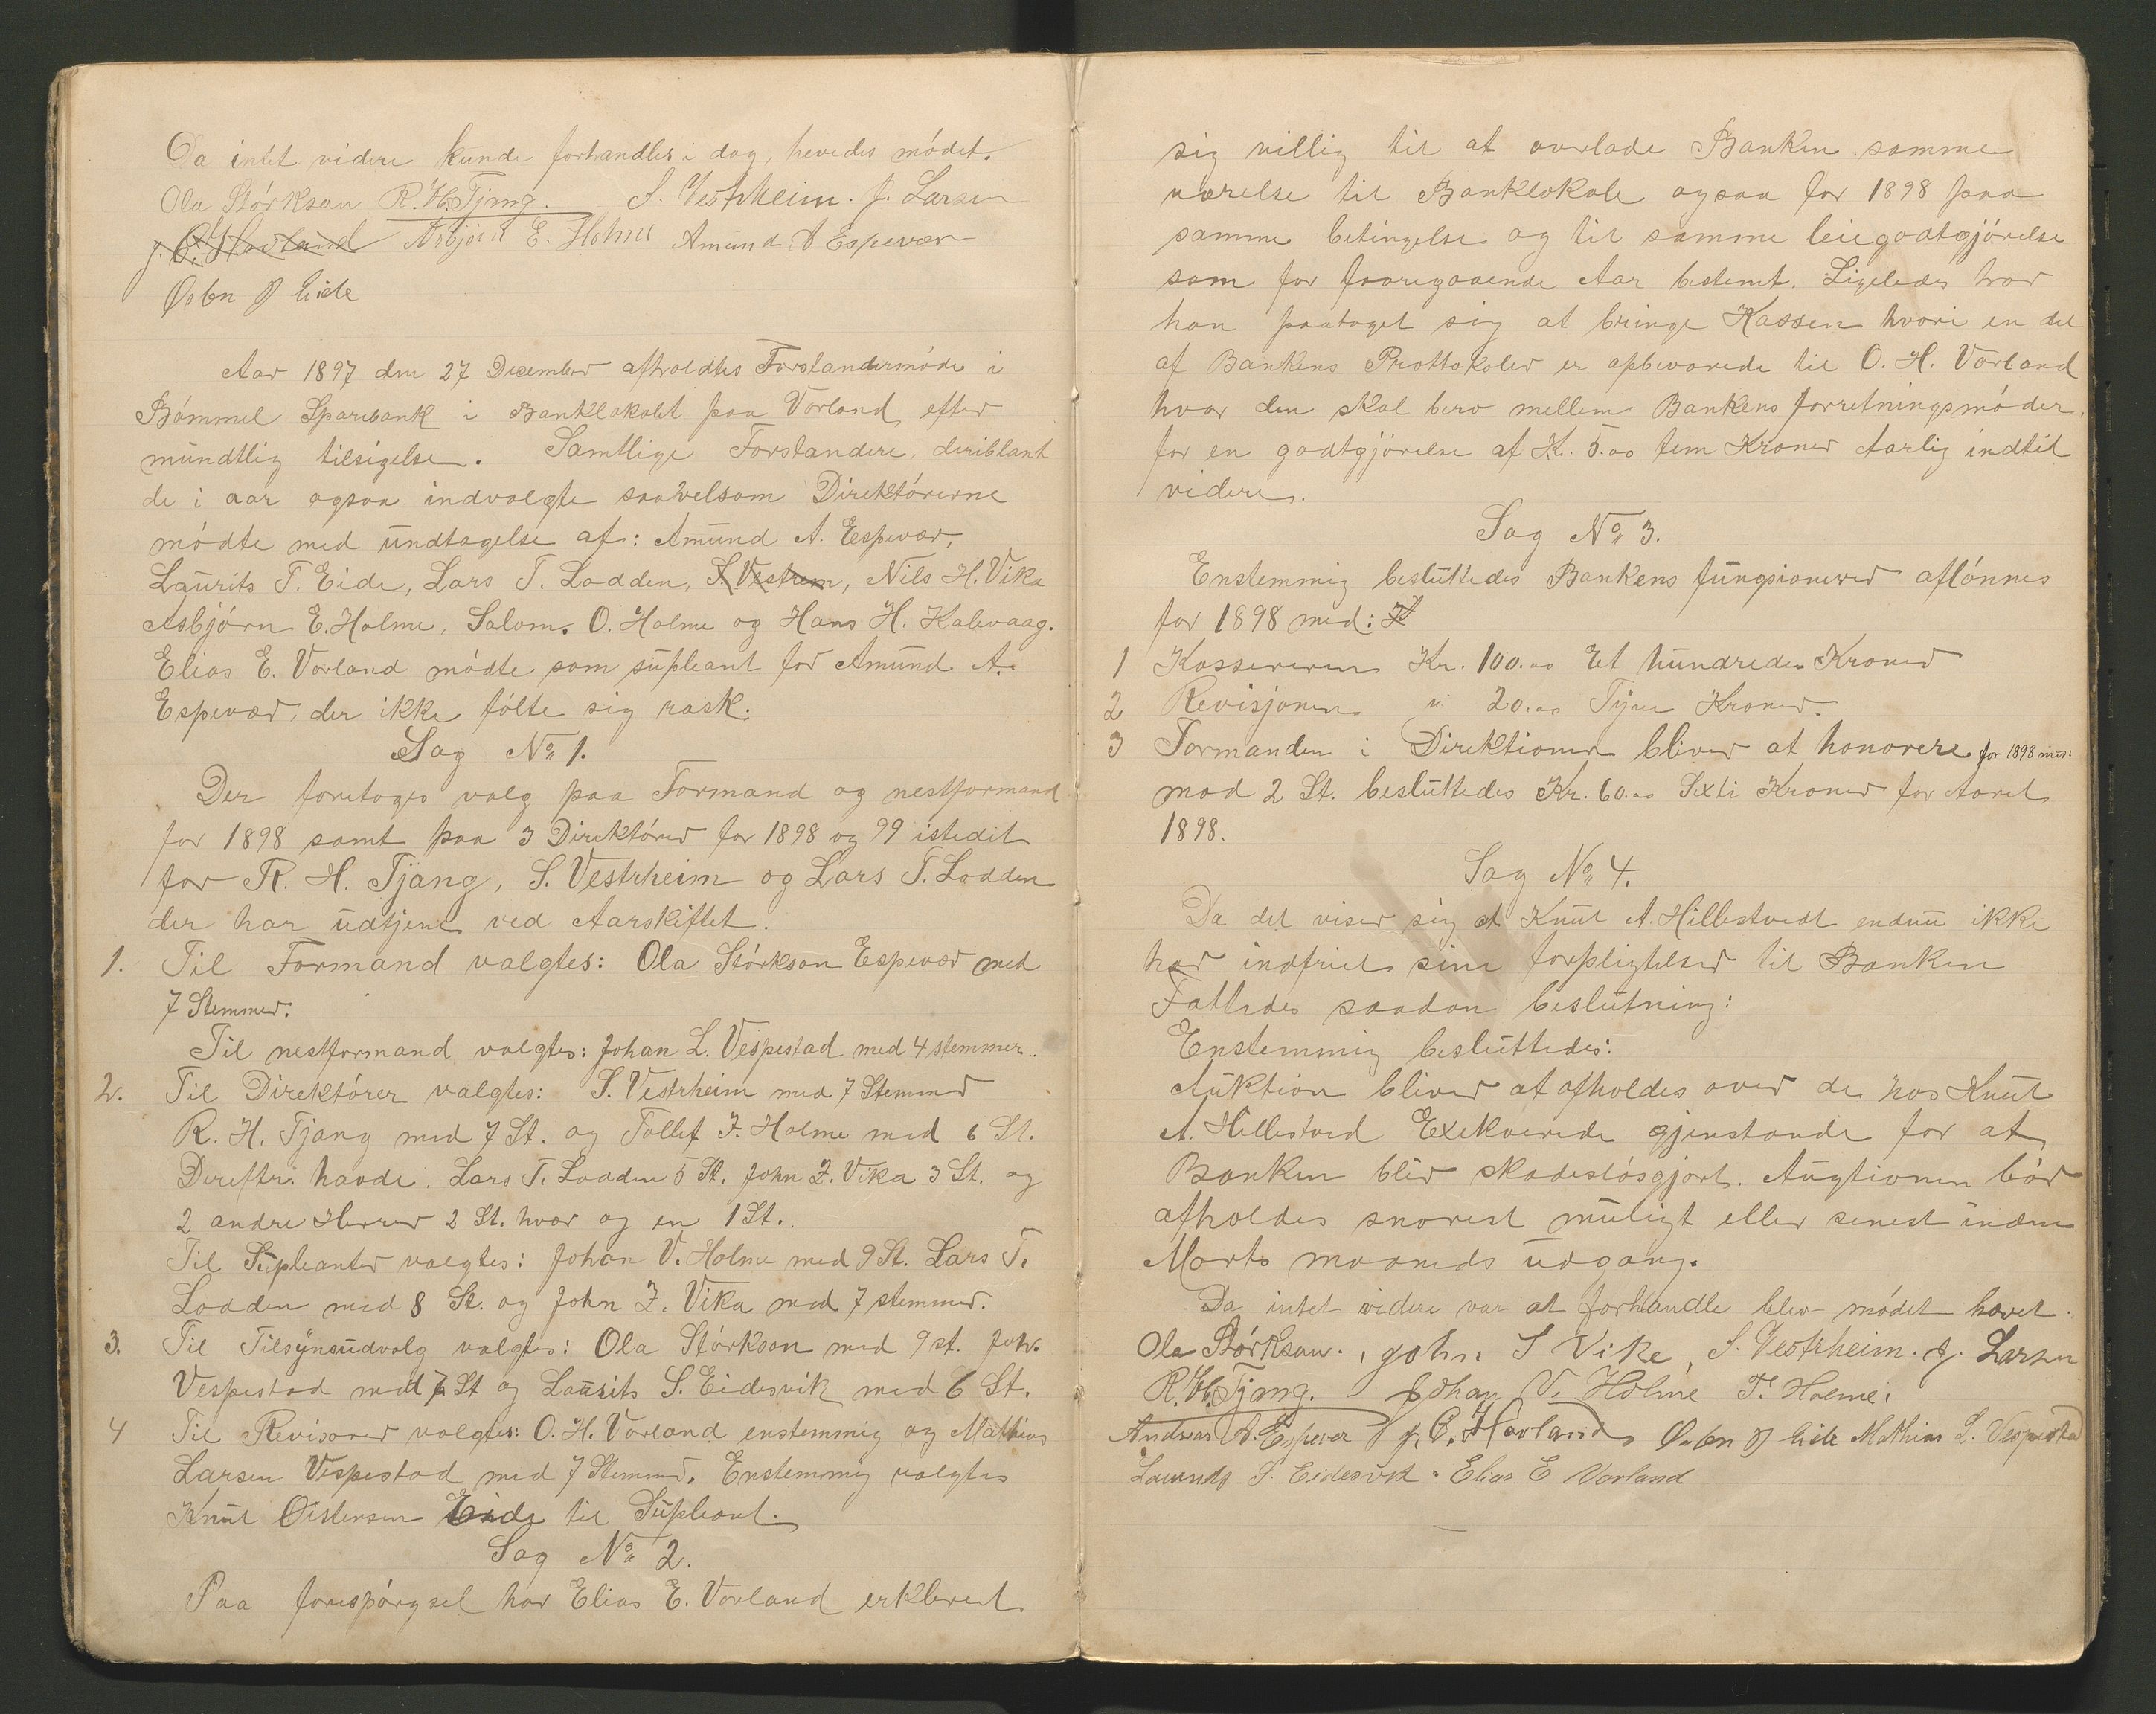 Da intet videre kunde forhandles i dag, hevedes mödet.
Ola Störkson R. H. Tjong. S. Vestrheim. J. Larsen
J. O. Havland Asbjörn E. Holme Amund A Espevær
Östen J Eide
Aar 1897 den 27 December afholdtes Forstandermöde i
Bömmel Sparebank i Banklokalet paa Vorland efter
mundtlig tilsigelse. Samtlige Forstandere, deriblant
de i aar ogsaa indvalgte saavelsom Direktörerne
mödte med undtagelse af: Amund A. Espevær,
Laurits T. Eide, Lars T. Lodden, S. Vestrem, Nils H. Vika
Asbjörn E. Holme, Salom. O. Holme og Hans H. Kalevaag.
Elias E. Vorland mödte som supleant for Amund A.
Espevær, der ikke fölte sig rask.
Sag No 1.
Der foretoges valg paa Formand og nestformand
for 1898 samt paa 3 Direktörer for 1898 og 99 istedet
for R. H. Tjang, S. Vestrheim og Lars T. Lodden
der har udtjent ved Aarskiftet.
1. Til Formand valgtes: Ola Störkson Espevær med
7 Stemmer.
Til nestformand valgtes: Johan L. Vespestad med 4 stemmer.
2. Til Direktörer valgtes: S. Vestrheim med 7 Stemmer
R. H. Tjang med 7 St. og Tollef J. Holme med 6 St.
Dereftr. havde. Lars T. Lodden 5 St. John Z. Vika 3 St. og
2 andre Herrer 2 St. hver og en 1 St.
Til Supleanter valgtes: Johan V. Holme med 9 St. Lars T.
Lodden med 8 St. og John Z. Vika med 7 stemmer.
3. Til Tilsynsudvalg valgtes: Ola Störkson med 9 st. Joh.
Vespestad med 7 St og Laurits S. Eidesvik med 6 St.
4 Til Revisorer valgtes: O. H. Vorland enstemmig og Mathias
Larsen Vespestad med 7 Stemmer. Enstemmig valgtes
Knut Östensen Eide til Supleant.
Sag No 2.
Paa forespörgsel har Elias E. Vorland erkleret
sig villig til at overlade Banken samme
værelse til Banklokale ogsaa for 1898 paa
samme betingelse og til samme leiegodtgjörelse
som for foregaaende Aar bestemt. Ligeledes har
han paataget sig at bringe Kassen hvori en del
af Bankens Prottokoler er opbevarede til O. H. Vorland
hvor den skal bero mellem Bankens forretningsmöder,
for en godtgjörelse af K. 5.00 fem Kroner Aarlig indtil
videre.
Sag No 3.
Enstemmig besluttedes Bankens fungsionerer aflönnes
for 1898 med:
1 Kassereren Kr. 100.00 Et hundrede Kroner
2 Revisjonen " 20.00 Tyve Kroner.
3 Formanden i Direktionen bliver at honorere for 1898 med:
mod 2 St. besluttedes Kr. 60.00 Sexti Kroner for Aaret
1898.
Sag No 4.
Da det viser sig at Knut A. Hillestvedt endnu ikke
har indfriet sine forpligtelser til Banken
Fattedes saadan beslutning:
Enstemmig besluttedes:
Auktion bliver at afholdes over de hos Knut
A. Hillestved Exekverede gjenstande for at
Banken blir skadeslösgjort. Augtionen bör
afholdes snarest muligt eller senest inden
Marts maaneds udgang.
Da intet videre var at forhandle blev mödet hævet.
Ola Störkson, John S Vike, S. Vestrheim. J. Larsen
R. H. Tjong. Johan V. Holme T. Holme,
Andreas A. Espever J. O. Havland Östen J Eide Mathias L. Vespestad
Laurits S. Eidesvik. Elias E Vorland